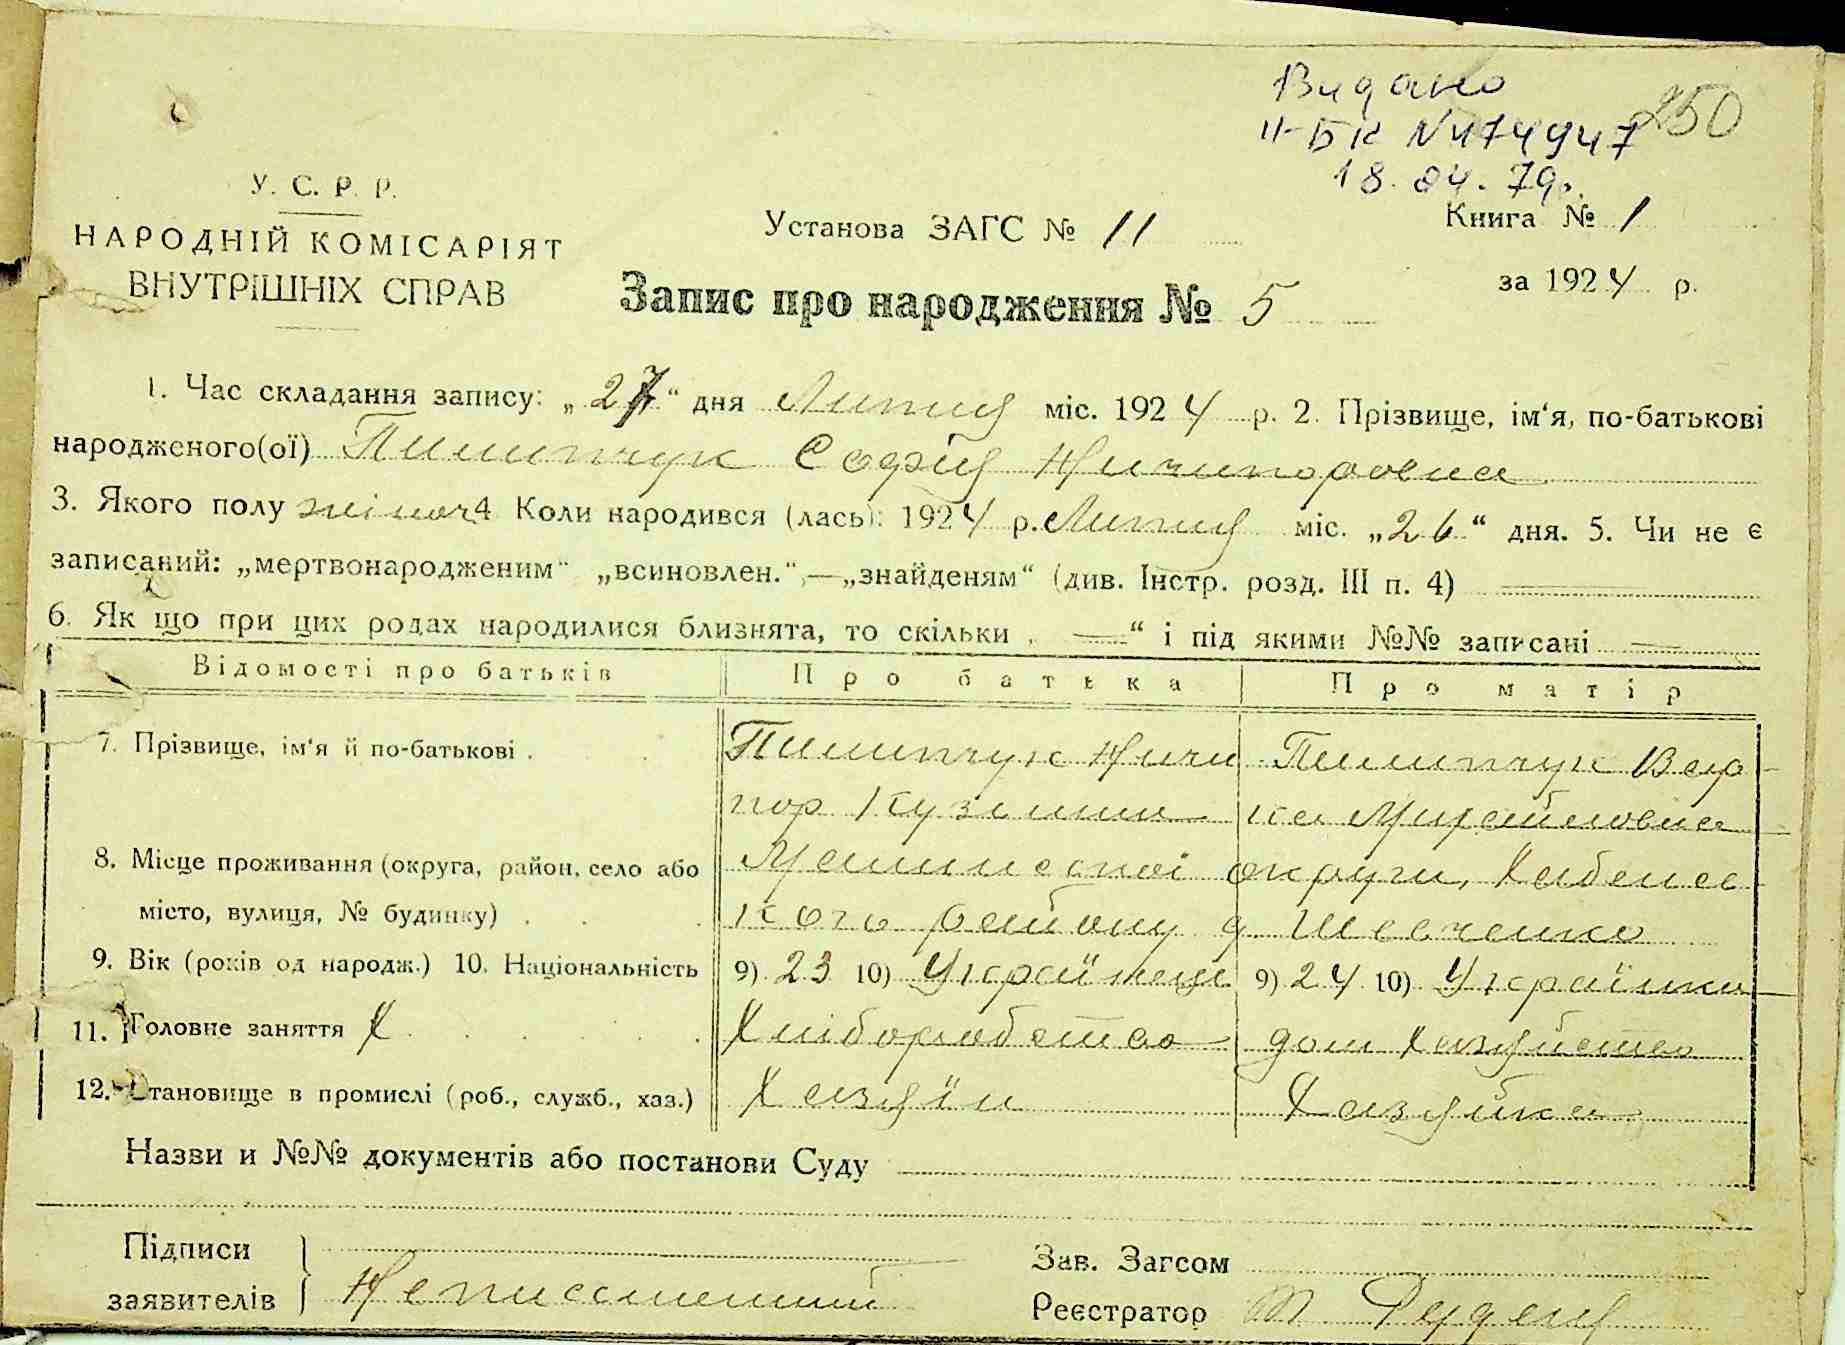 Видано
ІІ-БК №474947
250
18.04.79р.
У. С. Р. Р.
НАРОДНІЙ КОМІСАРІЯТ
ВНУТРІШНІХ СПРАВ
Установа ЗАГС № 11
Книга № 1
за 1924 р.
Запис про народження № 5
1. Час складання запису: „27“ дня Липця міс. 1924 р. 2. Прізвище, ім‘я, по-батькові
народженого(ої) Пилипчук Софія Ничипоровна
3. Якого полу жіноч 4 Коли народився (лась): 1924 р. Липця міс. „26“ дня. 5. Чи не є
записаний: „мертвонародженим“ „всиновлен.“,—„знайденям“ (див. Інстр. розд. III п. 4)
6. Як що при цих родах народилися близнята, то скільки „ —“ і під якими №№ записані —
Відомості про батьків Про батька Про матір
7. Прізвище, ім‘я й по-батькові . Пилипчук Ничи Пилипчук Вар-
пор Кузьмич ка Михайловна
8. Місце проживання (округа, район, село або місто, вулиця, № будинку) округи, Хабенс-
кого району д Шевченко
9. Вік (років од народж.) 10. Національність 9) 23 10) Українець 9) 24 10) Українка
11. Головне заняття Х Хліборобство дом Хазяйство
12. Становище в промислі (роб., служб., хаз.) Хазяїн Хазяйка
Назви и №№ документів або постанови Суду
Підписи
заявителів Неписьменний
Зав. Загсом
Реєстратор